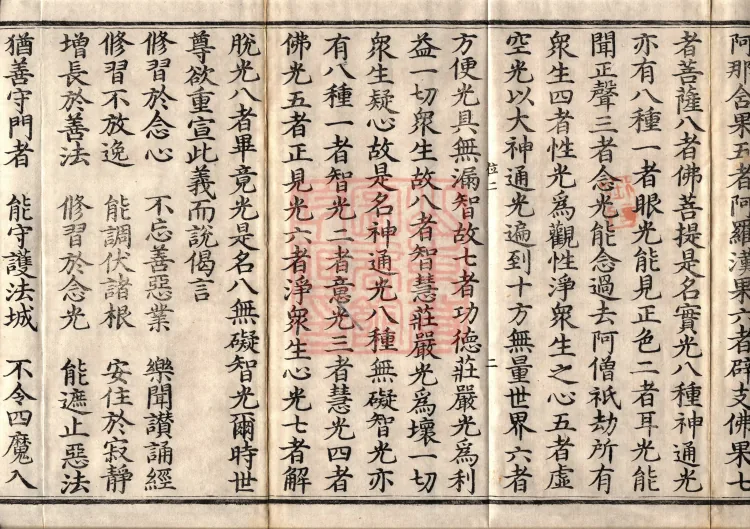 阿那含果五者阿羅漢果六者辟支佛果七
者菩薩八者佛菩提是名實光八種神通光
亦有八種一者眼光能見正色二者耳光能
聞正聲三者念光能念過去阿僧祇劫所有
衆生四者性光爲觀性淨衆生之心五者虛
空光以大神通光遍到十方無量世界六者
位二
二
方便光具無漏智故七者功德莊嚴光爲利
益一切衆生故八者智慧莊嚴光爲壞一切
衆生疑心故是名神通光八種無礙智光亦
有八種一者智光二者意光三者慧光四者
佛光五者正見光六者淨衆生心光七者解
脫光八者畢竟光是名八無礙智光爾時世
尊欲重宣此義而說偈言
修習於念心 不忘善惡業 樂聞讚誦經
修習不放逸 能調伏諸根 安住於寂靜
增長於善法 修習於念光 能遮止惡法
猶善守門者 能守護法城 不令四魔入